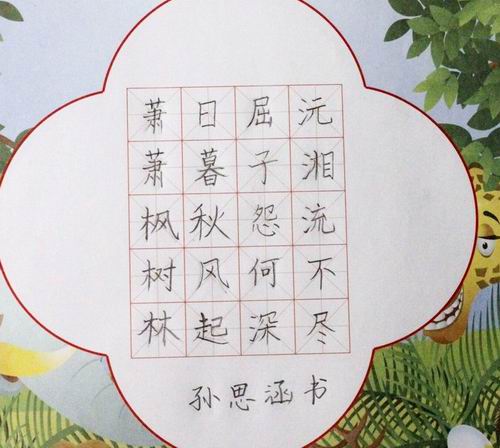 沅湘流不尽
屈子怨何深
日暮秋风起
萧萧枫树林
孙思涵书